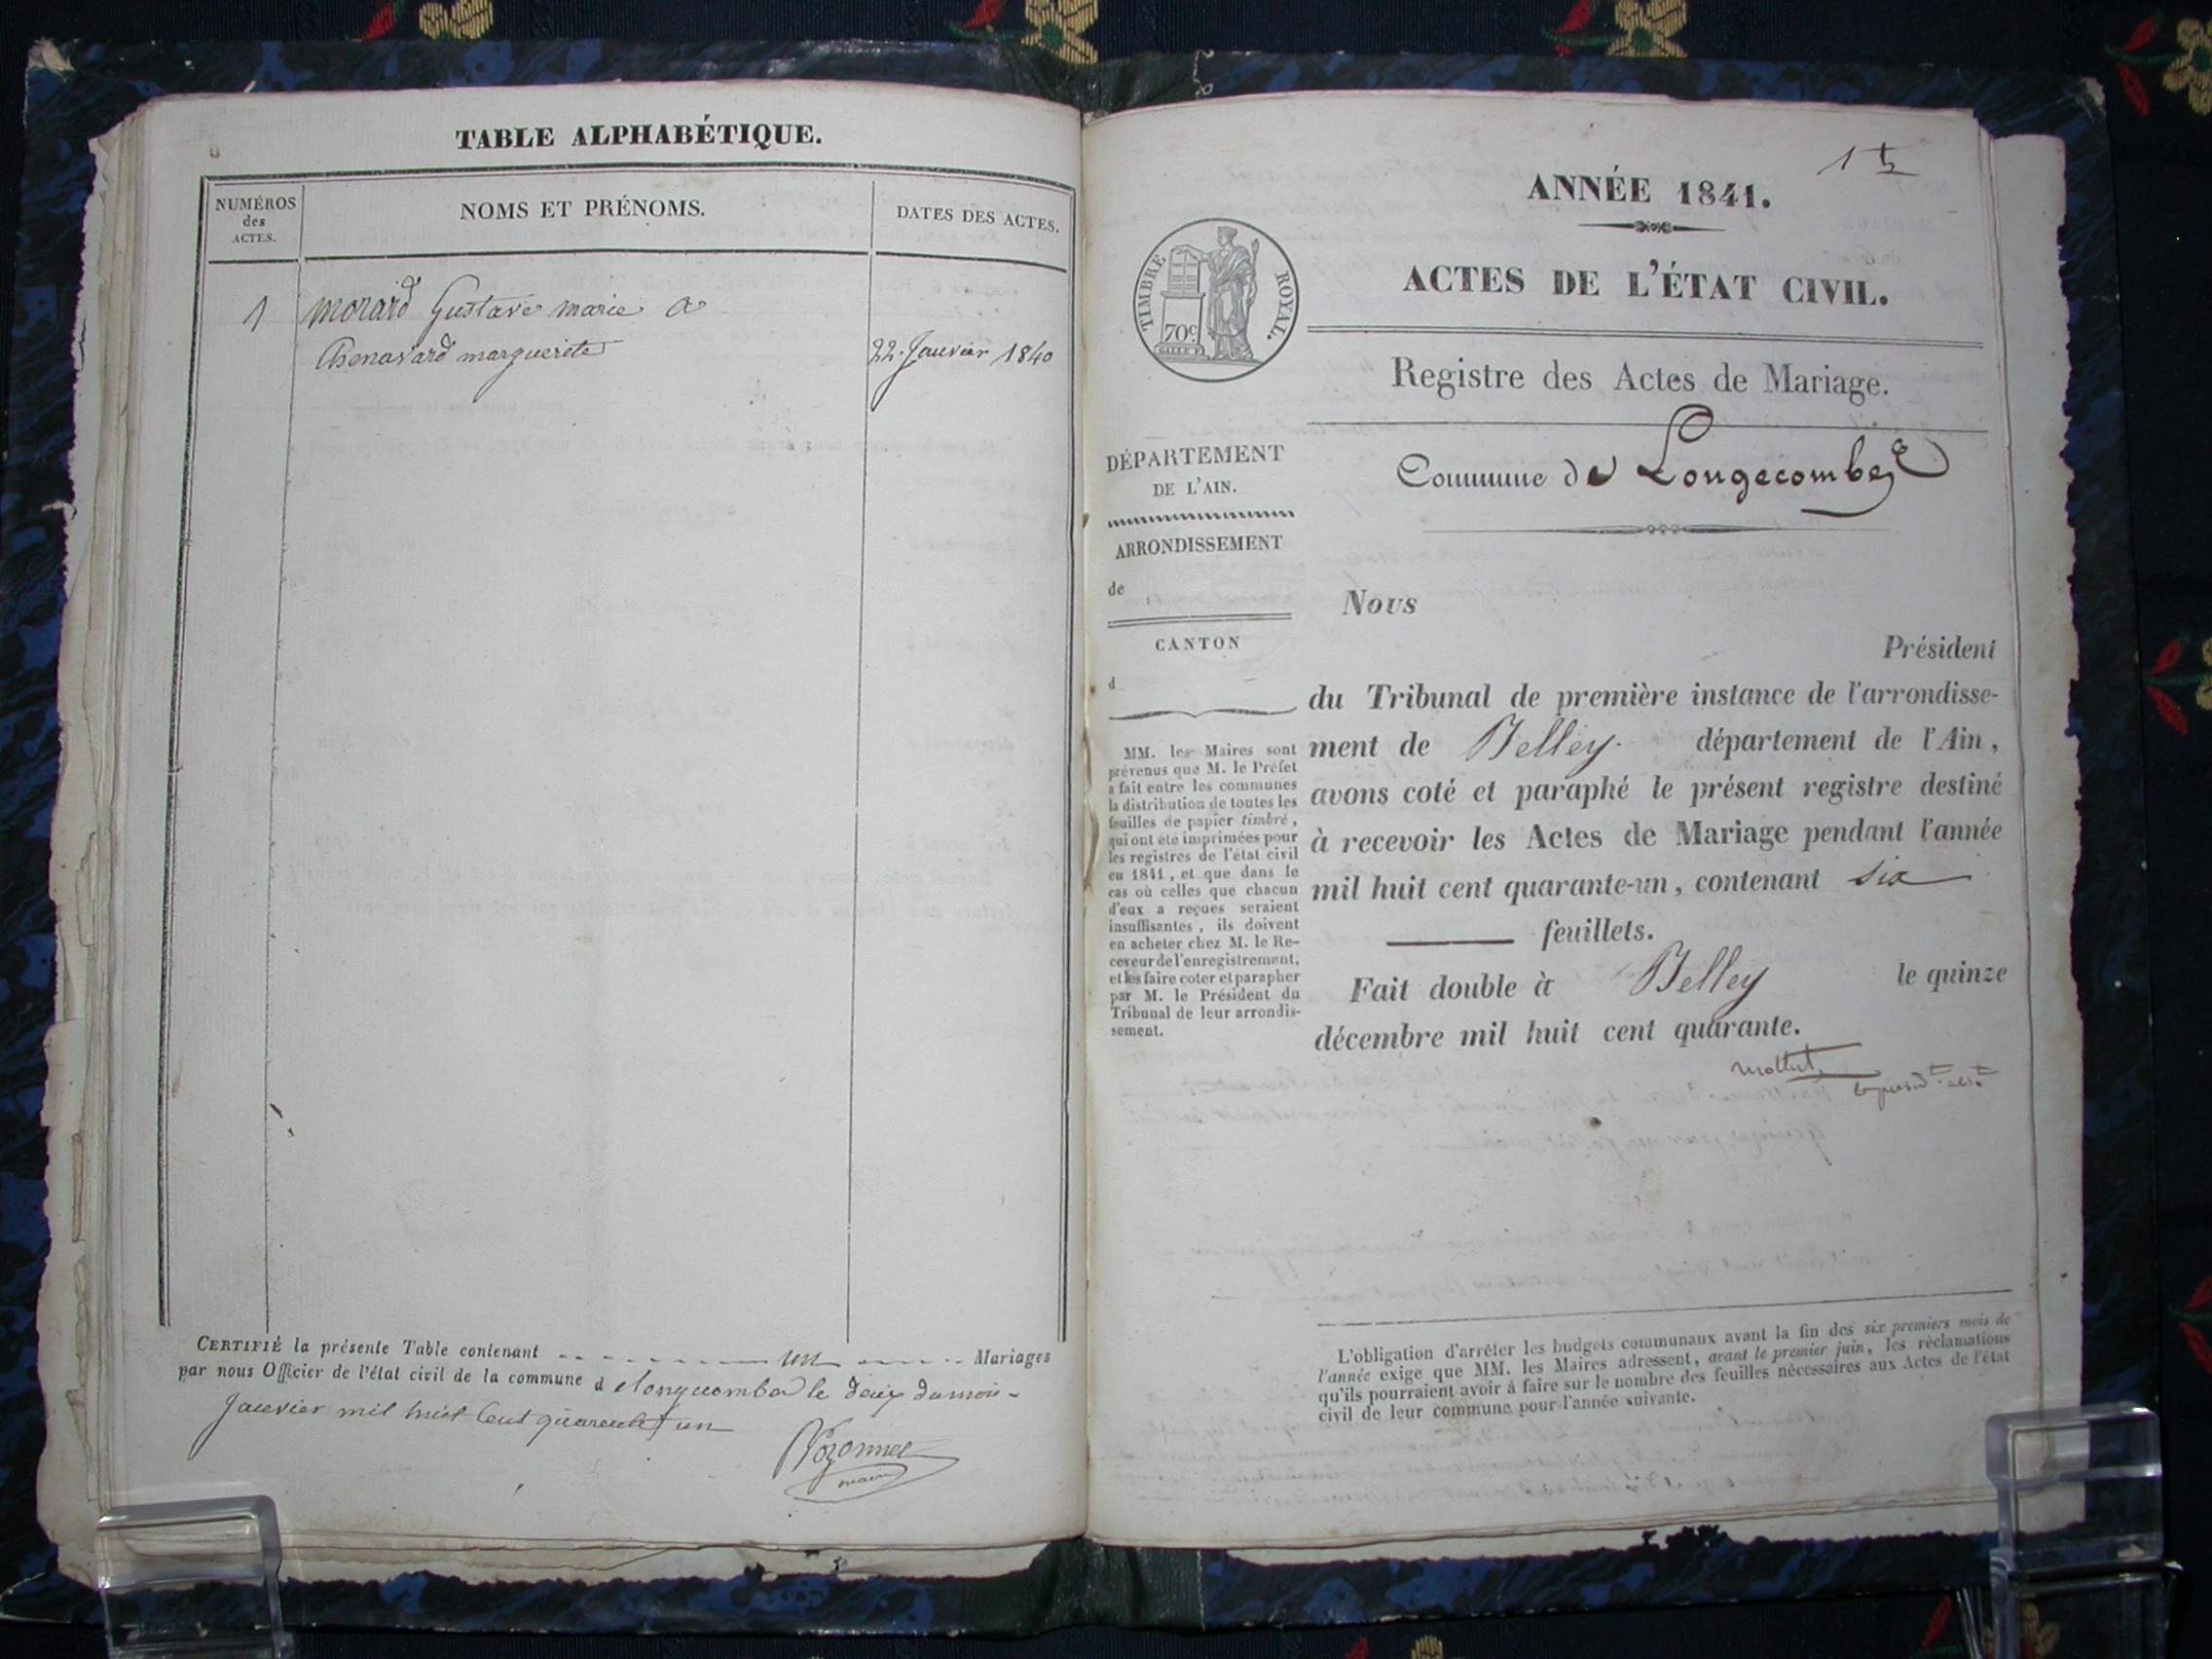 TABLE ALPHABÉTIQUE.
NUMÉROS
des
ACTES.
NOMS ET PRÉNOMS.
DATES DES ACTES.
1 morard Gustave marie a
Chenavard marguerite 22 Janvier 1840
CERTIFIÉ la présente Table contenant un Mariages
par nous Officier de l'état civil de la commune d elonguecombe le deux du mois
Janvier mil huit Cent quarente un
maire
1
ANNÉE 1841.
ACTES DE L'ÉTAT CIVIL.
TIMBRE ROYAL.
70c
Registre des Actes de Mariage.
Commune de Longecombe
DÉPARTEMENT
DE L'AIN.
ARRONDISSEMENT
de
CANTON
d
MM. les Maires sont
prévenus que M. le Préfet
a fait entre les communes
la distribution de toutes les
feuilles de papier timbré,
qui ont été imprimées pour
les registres de l'état civil
en 1841, et que dans le
cas où celles que chacun
d'eux a reçues seraient
insuffisantes, ils doivent
en acheter chez M. le Re-
ceveur de l'enregistrement,
et les faire coter et parapher
par M. le Président du
Tribunal de leur arrondis-
sement.
Nous
Président
du Tribunal de première instance de l'arrondisse-
ment de Belley. département de l'Ain,
avons coté et paraphé le présent registre destiné
à recevoir les Actes de Mariage pendant l'année
mil huit cent quarante-un, contenant six
feuillets.
Fait double à Belley le quinze
décembre mil huit cent quarante.
L'obligation d'arrêter les budgets communaux avant la fin des six premiers mois de
l'année exige que MM. les Maires adressent, avant le premier juin, les réclamations
qu'ils pourraient avoir à faire sur le nombre des feuilles nécessaires aux Actes de l'état
civil de leur commune pour l'année suivante.